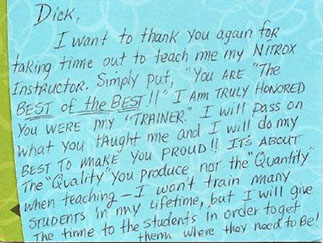 Dick,
I want to thank you again for
taking time out to teach me my NITROX
Instructor. Simply put, "You ARE "The
BEST of the BEST!!" I Am TRULY HONORED
You WERE my "TRAINER" I will pass on
what you taught me and I will do my
BEST To MAKE You PROUD!! IT'S ABOUT
The "Quality" You produce not the "Quantity"
when teaching - I won't train many
STUDENTS in my Lifetime, but I will give
The time to the students in order to get
them where they need to Be!